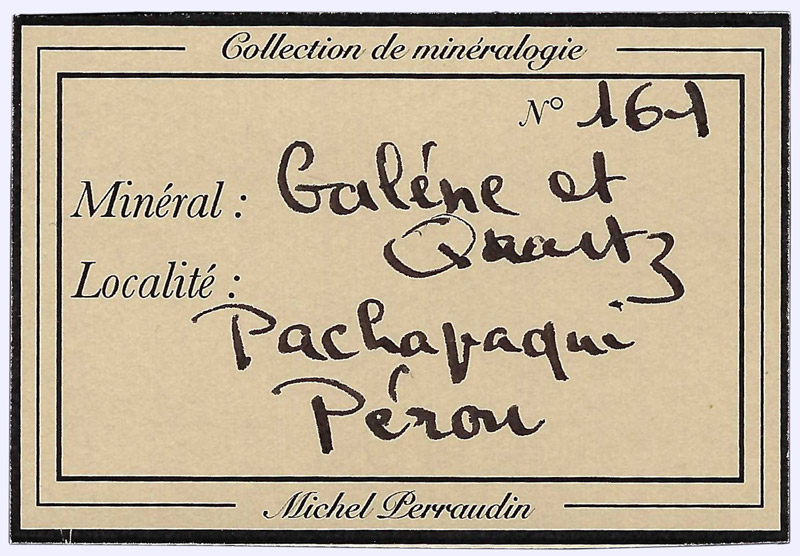 Collection de minéralogie
N° 161
Minéral : Galéne et
Quartz
Localité :
Pachapaqui
Pérou
Michel Perraudin